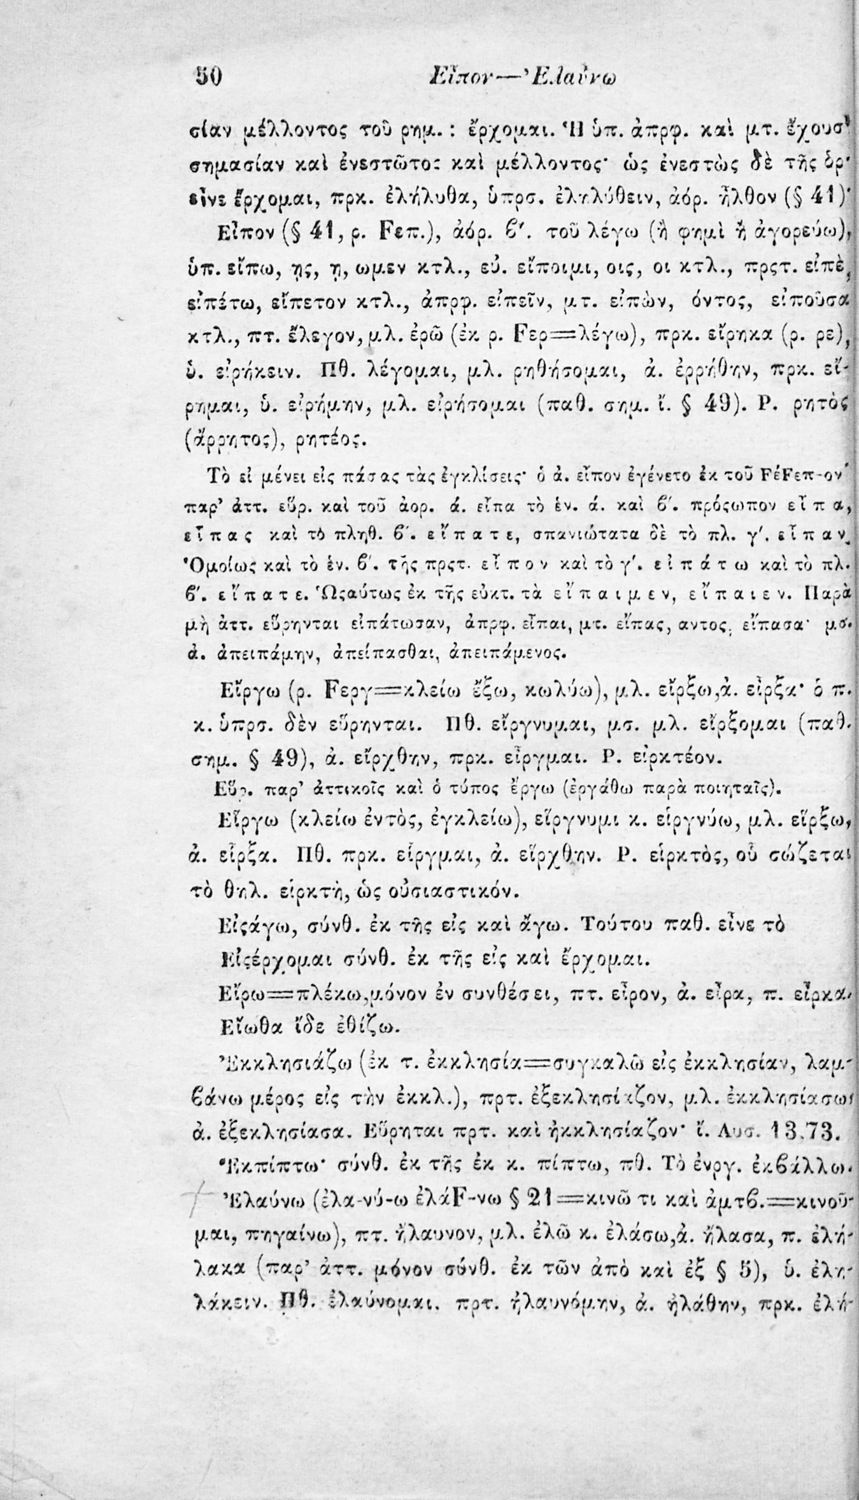 50 Εἶπον—Ἐλαύνω
σίαν μέλλοντος τοῦ ρημ. : ἔρχομαι. Ἡ ὑπ. ἀπρφ. καὶ μτ. ἔχουσι
σημασίαν καὶ ἐνεστῶτος καὶ μέλλοντος· ὡς ἐνεστὼς δὲ τῆς ὁρ·
εἶνε ἔρχομαι, πρκ. ἐλήλυθα, ὑπρσ. ἐληλύθειν, ἀόρ. ἦλθον (§ 41)·
Εἶπον (§ 41, ρ. Fεπ.), ἀόρ. ϐ′. τοῦ λέγω (ἢ φημὶ ἢ ἀγορεύω),
ὑπ. εἴπω, ῃς, ῃ, ωμεν κτλ., εὐ. εἴποιμι, οις, οι κτλ., πρςτ. εἰπὲ,
εἰπέτω, εἴπετον κτλ., ἀπρφ. εἰπεῖν, μτ. εἰπὼν, όντος, εἰποῦσα
κτλ., πτ. ἔλεγον, μλ. ἐρῶ (ἐκ ρ. Fερ=λέγω), πρκ. εἴρηκα (ρ. ρε),
ὑ. εἰρήκειν. Πθ. λέγομαι, μλ. ρηθήσομαι, ἀ. ἐρρήθην, πρκ. εἴ-
ρημαι, ὑ. εἰρήμην, μλ. εἰρήσομαι (παθ. σημ. ἴ. § 49). Ρ. ρητὸς
(ἄρρητος), ρητέος.
Τὸ ει μένει εἰς πάσας τὰς ἐγκλίσεις· ὁ ἀ. εἶπον ἐγένετο ἐκ τοῦ FέFεπ-ον·
παρ’ ἀττ. εὕρ. καὶ τοῦ ἀορ. ά. εἶπα τὸ ἑν. ά. καὶ ϐ′. πρόςωπον εἶπα,
εἶπας καὶ τὸ πληθ. ϐ′. εἴπατε, σπανιώτατα δὲ τὸ πλ. γ′. εἶπαν.
Ὁμοίως καὶ τὸ ἑν. ϐ′. τῆς πρςτ. εἶπον καὶ τὸ γ′. εἰπάτω καὶ τὸ πλ.
ϐ′. εἴπατε. Ὡςαύτως ἐκ τῆς εὐκτ. τὰ εἴπαιμεν, εἴπαιεν. Παρὰ
μὴ ἀττ. εὕρηνται εἰπάτωσαν, ἀπρφ. εἶπαι, μτ. εἴπας, αντος, εἴπασα· μσ.
ἀ. ἀπειπάμην, ἀπείπασθαι, ἀπειπάμενος.
Εἴργω (ρ. Fεργ=κλείω ἔξω, κωλύω), μλ. εἴρξω, ἀ. εἶρξα· ὁ π.
κ. ὑπρσ. δὲν εὕρηνται. Πθ. εἴργνυμαι, μσ. μλ. εἴρξομαι (παθ.
σημ. § 49), ἀ. εἴρχθην, πρκ. εἶργμαι. Ρ. εἰρκτέον.
Εὕρ. παρ’ ἀττικοῖς καὶ ὁ τύπος ἔργω (ἐργάθω παρὰ ποιηταῖς).
Εἵργω (κλείω ἐντὸς, ἐγκλείω), εἵργνυμι κ. εἱργνύω, μλ. εἵρξω,
ἀ. εἷρξα. Πθ. πρκ. εἷργμαι, ἀ. εἵρχθην. Ρ. εἱρκτὸς, οὗ σώζεται
τὸ θηλ. εἱρκτὴ, ὡς οὐσιαστικόν.
Εἰςάγω, σύνθ. ἐκ τῆς εἰς καὶ ἄγω. Τούτου παθ. εἶνε τὸ
Εἰςέρχομαι σύνθ. ἐκ τῆς εἰς καὶ ἔρχομαι.
Εἴρω=πλέκω, μόνον ἐν συνθέσει, πτ. εἶρον, ἀ. εἶρα, π. εἶρκα.
Εἴωθα ἴδε ἐθίζω.
Ἐκκλησιάζω (ἐκ τ. ἐκκλησία=συγκαλῶ εἰς ἐκκλησίαν, λαμ-
ϐάνω μέρος εἰς τὴν ἐκκλ.), πρτ. ἐξεκλησίαζον, μλ. ἐκκλησιάσω,
ἀ. ἐξεκλησίασα. Εὕρηται πρτ. καὶ ἠκκλησίαζον· ἴ. Λυσ. 13.73.
Ἐκπίπτω· σύνθ. ἐκ τῆς ἐκ κ. πίπτω, πθ. Τὸ ἐνργ. ἐκϐάλλω.
Ἐλαύνω (ἐλα-νύ-ω ἐλάF-νω § 21=κινῶ τι καὶ ἀμτϐ.=κινοῦ-
μαι, πηγαίνω), πτ. ἤλαυνον, μλ. ἐλῶ κ. ἐλάσω, ἀ. ἤλασα, π. ἐλή-
λακα (παρ’ ἀττ. μόνον σύνθ. ἐκ τῶν ἀπὸ καὶ ἐξ § 5), ὑ. ἐλη-
λάκειν. Πθ. ἐλαύνομαι. πρτ. ἠλαυνόμην, ἀ. ἠλάθην, πρκ. ἐλή-